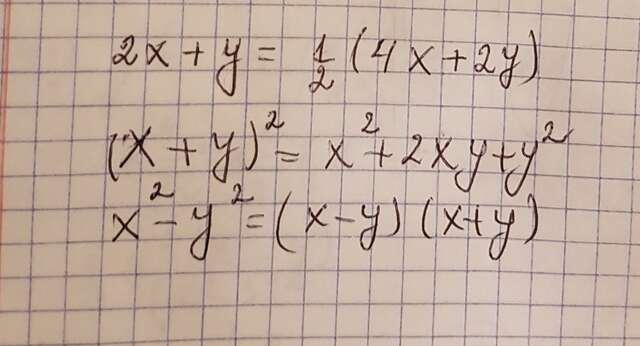 2x + y = 1/2 (4x + 2y)
(x + y)² = x² + 2xy + y²
x² - y² = (x - y) (x + y)